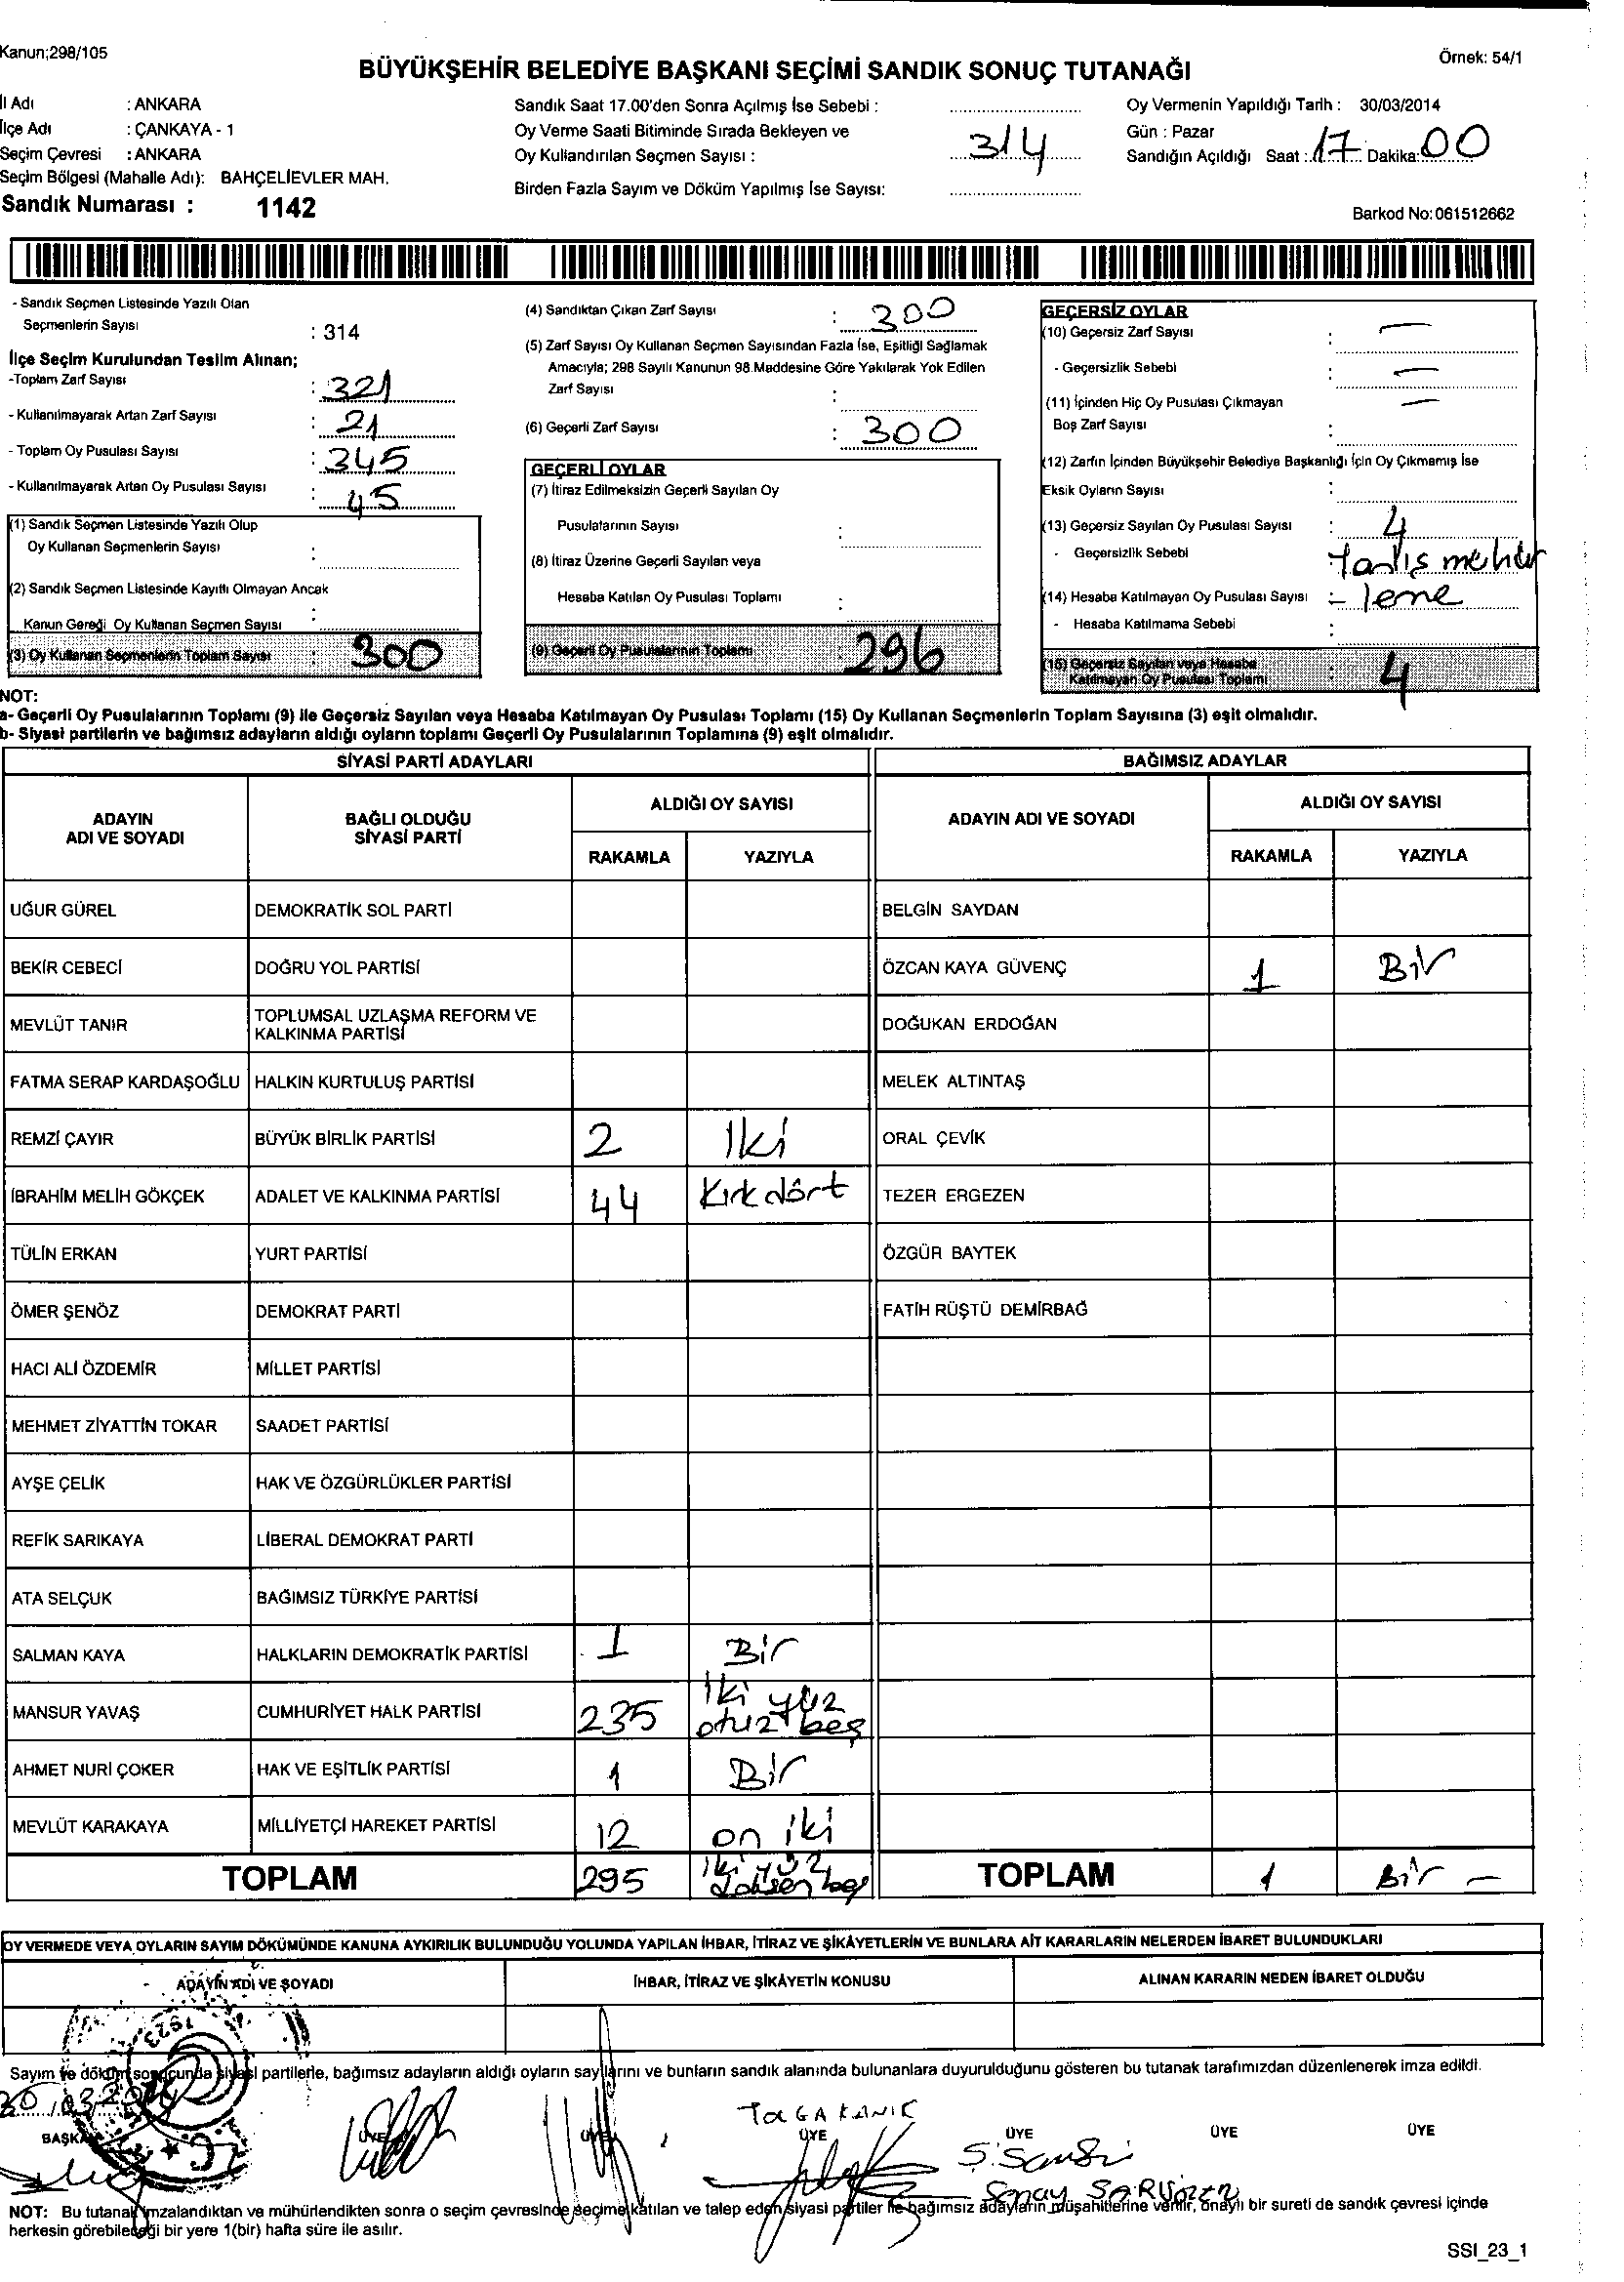 Kanun;298/105
Örnek: 54/1
BÜYÜKŞEHİR BELEDİYE BAŞKANI SEÇİMİ SANDIK SONUÇ TUTANAĞI
İl Adı : ANKARA
İlçe Adı : ÇANKAYA - 1
Seçim Çevresi : ANKARA
Seçim Bölgesi (Mahalle Adı): BAHÇELİEVLER MAH.
Sandık Numarası : 1142
Sandık Saat 17.00'den Sonra Açılmış İse Sebebi :
Oy Verme Saati Bitiminde Sırada Bekleyen ve
Oy Kullandırılan Seçmen Sayısı : 314
Birden Fazla Sayım ve Döküm Yapılmış İse Sayısı:
Oy Vermenin Yapıldığı Tarih : 30/03/2014
Gün : Pazar
Sandığın Açıldığı Saat : 17 Dakika: 00
Barkod No: 061512662
- Sandık Seçmen Listesinde Yazılı Olan
Seçmenlerin Sayısı : 314
İlçe Seçim Kurulundan Teslim Alınan;
-Toplam Zarf Sayısı : 321
- Kullanılmayarak Artan Zarf Sayısı : 21
- Toplam Oy Pusulası Sayısı : 345
- Kullanılmayarak Artan Oy Pusulası Sayısı : 45
(1) Sandık Seçmen Listesinde Yazılı Olup
Oy Kullanan Seçmenlerin Sayısı :
(2) Sandık Seçmen Listesinde Kayıtlı Olmayan Ancak
Kanun Gereği Oy Kullanan Seçmen Sayısı :
(3) Oy Kullanan Seçmenlerin Toplam Sayısı : 300
(4) Sandıktan Çıkan Zarf Sayısı : 300
(5) Zarf Sayısı Oy Kullanan Seçmen Sayısından Fazla İse, Eşitliği Sağlamak
Amacıyla; 298 Sayılı Kanunun 98.Maddesine Göre Yakılarak Yok Edilen
Zarf Sayısı :
(6) Geçerli Zarf Sayısı : 300
GEÇERLİ OYLAR
(7) İtiraz Edilmeksizin Geçerli Sayılan Oy
Pusulalarının Sayısı :
(8) İtiraz Üzerine Geçerli Sayılan veya
Hesaba Katılan Oy Pusulası Toplamı :
(9) Geçerli Oy Pusulalarının Toplamı : 296
GEÇERSİZ OYLAR
(10) Geçersiz Zarf Sayısı : —
- Geçersizlik Sebebi : —
(11) İçinden Hiç Oy Pusulası Çıkmayan —
Boş Zarf Sayısı :
(12) Zarfın İçinden Büyükşehir Belediye Başkanlığı İçin Oy Çıkmamış İse
Eksik Oyların Sayısı :
(13) Geçersiz Sayılan Oy Pusulası Sayısı : 4
- Geçersizlik Sebebi : Yanlış mühür
(14) Hesaba Katılmayan Oy Pusulası Sayısı : - leme
- Hesaba Katılmama Sebebi :
(15) Geçersiz Sayılan veya Hesaba
Katılmayan Oy Pusulası Toplamı : 4
NOT:
a- Geçerli Oy Pusulalarının Toplamı (9) ile Geçersiz Sayılan veya Hesaba Katılmayan Oy Pusulası Toplamı (15) Oy Kullanan Seçmenlerin Toplam Sayısına (3) eşit olmalıdır.
b- Siyasi partilerin ve bağımsız adayların aldığı oyların toplamı Geçerli Oy Pusulalarının Toplamına (9) eşit olmalıdır.
SİYASİ PARTİ ADAYLARI
ADAYIN ADI VE SOYADI
BAĞLI OLDUĞU SİYASİ PARTİ
ALDIĞI OY SAYISI
RAKAMLA YAZIYLA
UĞUR GÜREL DEMOKRATİK SOL PARTİ
BEKİR CEBECİ DOĞRU YOL PARTİSİ
MEVLÜT TANIR TOPLUMSAL UZLAŞMA REFORM VE
KALKINMA PARTİSİ
FATMA SERAP KARDAŞOĞLU HALKIN KURTULUŞ PARTİSİ
REMZİ ÇAYIR BÜYÜK BİRLİK PARTİSİ 2 İki
İBRAHİM MELİH GÖKÇEK ADALET VE KALKINMA PARTİSİ 44 Kırkdört
TÜLİN ERKAN YURT PARTİSİ
ÖMER ŞENÖZ DEMOKRAT PARTİ
HACI ALİ ÖZDEMİR MİLLET PARTİSİ
MEHMET ZİYATTİN TOKAR SAADET PARTİSİ
AYŞE ÇELİK HAK VE ÖZGÜRLÜKLER PARTİSİ
REFİK SARIKAYA LİBERAL DEMOKRAT PARTİ
ATA SELÇUK BAĞIMSIZ TÜRKİYE PARTİSİ
SALMAN KAYA HALKLARIN DEMOKRATİK PARTİSİ 1 Bir
MANSUR YAVAŞ CUMHURİYET HALK PARTİSİ 235 İki yüz
otuz beş
AHMET NURİ ÇOKER HAK VE EŞİTLİK PARTİSİ 1 Bir
MEVLÜT KARAKAYA MİLLİYETÇİ HAREKET PARTİSİ 12 on iki
TOPLAM 295 iki yüz
doksen beş
BAĞIMSIZ ADAYLAR
ADAYIN ADI VE SOYADI
ALDIĞI OY SAYISI
RAKAMLA YAZIYLA
BELGİN SAYDAN
ÖZCAN KAYA GÜVENÇ 1 Bir
DOĞUKAN ERDOĞAN
MELEK ALTINTAŞ
ORAL ÇEVİK
TEZER ERGEZEN
ÖZGÜR BAYTEK
FATİH RÜŞTÜ DEMİRBAĞ
TOPLAM 1 Bir —
OY VERMEDE VEYA OYLARIN SAYIM DÖKÜMÜNDE KANUNA AYKIRILIK BULUNDUĞU YOLUNDA YAPILAN İHBAR, İTİRAZ VE ŞİKÂYETLERİN VE BUNLARA AİT KARARLARIN NELERDEN İBARET BULUNDUKLARI
ADAYIN ADI VE SOYADI İHBAR, İTİRAZ VE ŞİKÂYETİN KONUSU ALINAN KARARIN NEDEN İBARET OLDUĞU
1923
Sayım ve döküm sonucunda siyasi partilerle, bağımsız adayların aldığı oyların sayılarını ve bunların sandık alanında bulunanlara duyurulduğunu gösteren bu tutanak tarafımızdan düzenlenerek imza edildi.
30/03/2014
TOLGA KANIK
BAŞKAN ÜYE ÜYE ÜYE ÜYE ÜYE ÜYE
Ş.Sarı
Şenay SARI
NOT: Bu tutanak imzalandıktan ve mühürlendikten sonra o seçim çevresinde seçime katılan ve talep eden siyasi partiler ile bağımsız adayların müşahitlerine verilir, onaylı bir sureti de sandık çevresi içinde
herkesin görebileceği bir yere 1(bir) hafta süre ile asılır.
SSI_23_1